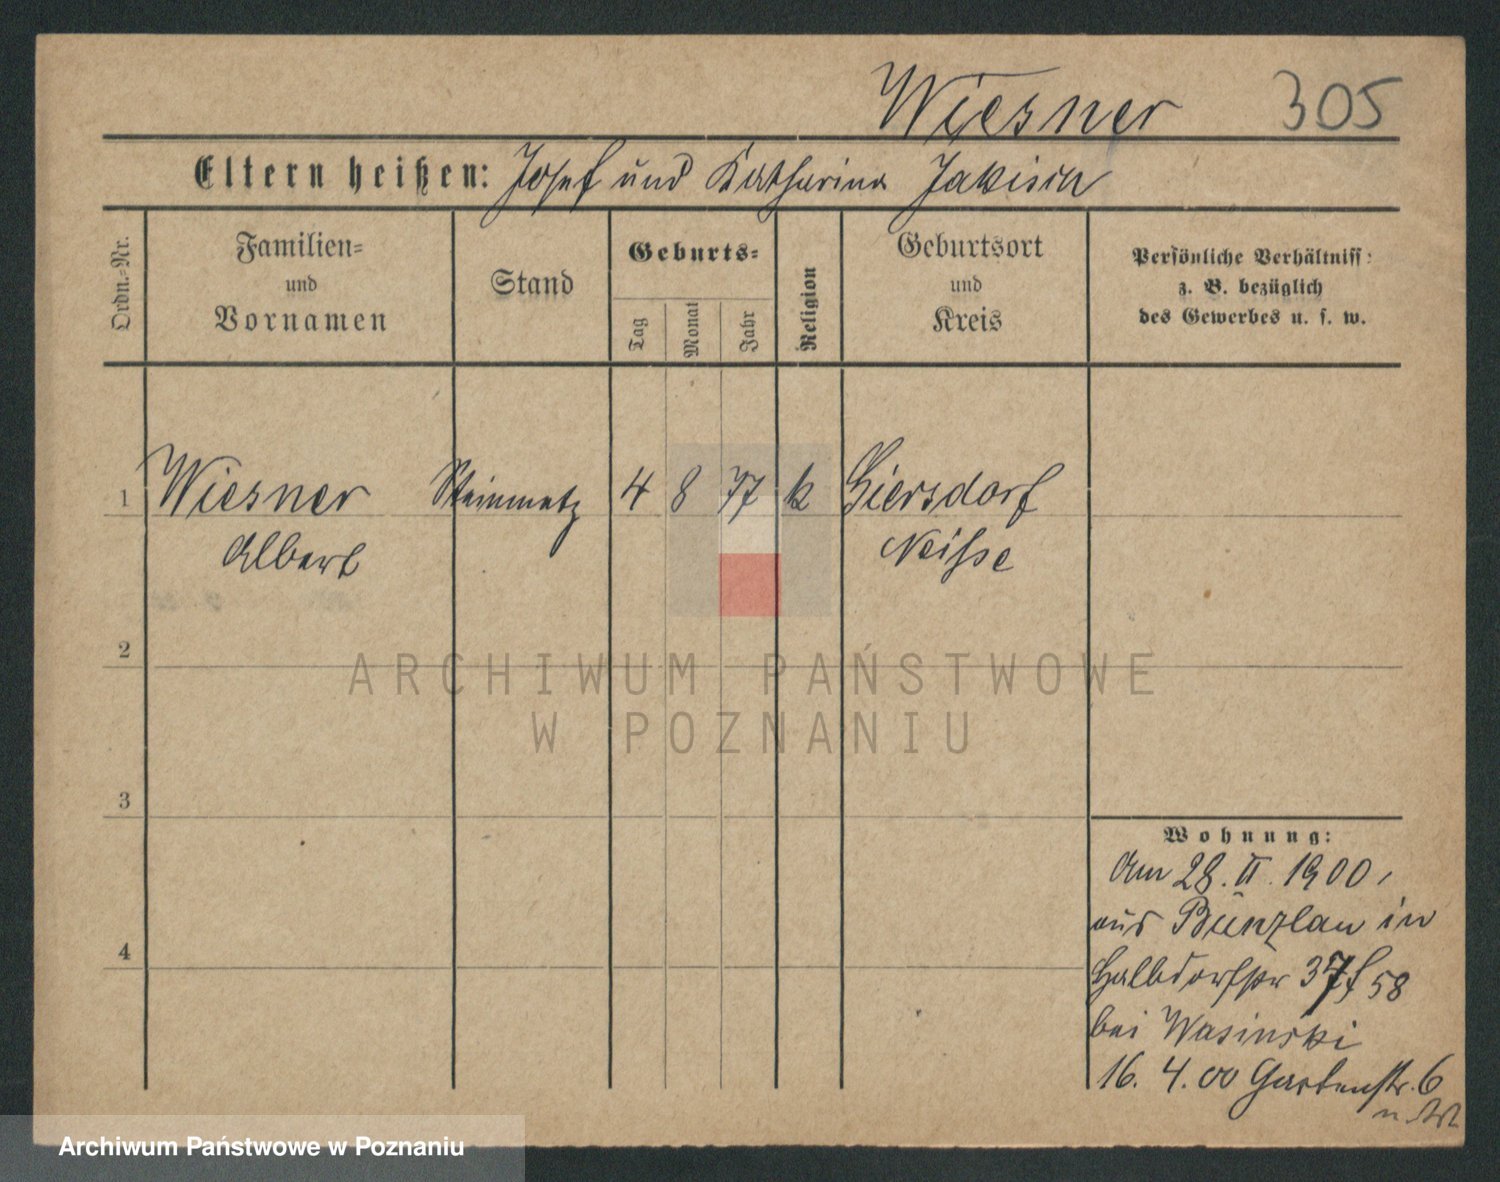 Wiesner 305
Eltern heißen: Josef und Katharina Jakisch
Ordn.-Nr.
Familien-
und
Vornamen
Stand
Geburts-
Tag
Monat
Jahr
Religion
Geburtsort
und
Kreis
Persönliche Verhältniss:
z. B. bezüglich
des Gewerbes u. s. w.
1 Wiesner Steinmetz 4 8 77 k Giersdorf
Albert Neisse
2
ARCHIWUM PAŃSTWOWE
W POZNANIU
3
4
Wohnung:
Am 28. II. 1900,
aus Bunzlau in
Halbdorfstr 37 58
bei Wasinski
16. 4. 00 Gartenstr. 6
Archiwum Państwowe w Poznaniu